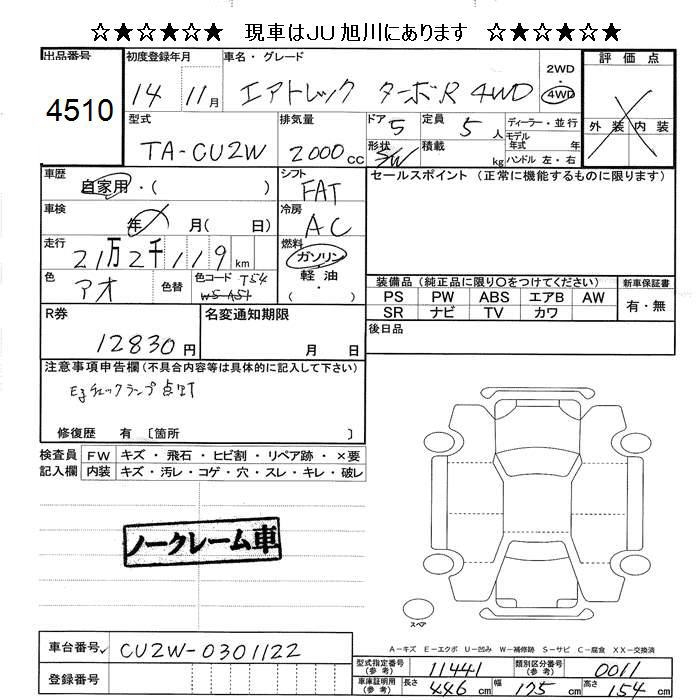 ☆★☆★☆★☆ 現車はJU旭川にあります ☆★☆★☆★☆
出品番号 初度登録年月 車名・グレード 評価点
4510 14 11月 エアトレック ターボR 4WD 2WD・4WD
型式 排気量 ドア 5 定員 5人 ディーラー・並行 外装 内装
TA-CU2W 2000cc 形状 S/W 積載 kg モデル年式 年 ハンドル 左・右
車歴 シフト セールスポイント(正常に機能するものに限ります)
自家用・( ) FAT
車検 冷房
年 月( 日) AC
走行 燃料
21万2千119km ガソリン・軽油・( )
色 色替 色コード T54
アオ
装備品(純正品に限り○をつけてください) 新車保証書
PS PW ABS エアB AW 有・無
SR ナビ TV カワ
R券 名変通知期限 後日品
12830円 月 日
注意事項申告欄(不具合内容等は具体的に記入して下さい)
Egチェックランプ点灯
修復歴 有〔箇所 〕
検査員 FW キズ・飛石・ヒビ割・リペア跡・×要
記入欄 内装 キズ・汚レ・コゲ・穴・スレ・キレ・破レ
ノークレーム車
スペア
A−キズ E−エクボ U−凹み W−補修跡 S−サビ C−腐食 XX−交換済
車台番号 CU2W-0301122
型式指定番号(参考) 11441 類別区分番号(参考) 0011
登録番号
車庫証明用(参考) 長さ 446cm 幅 175cm 高さ 154cm